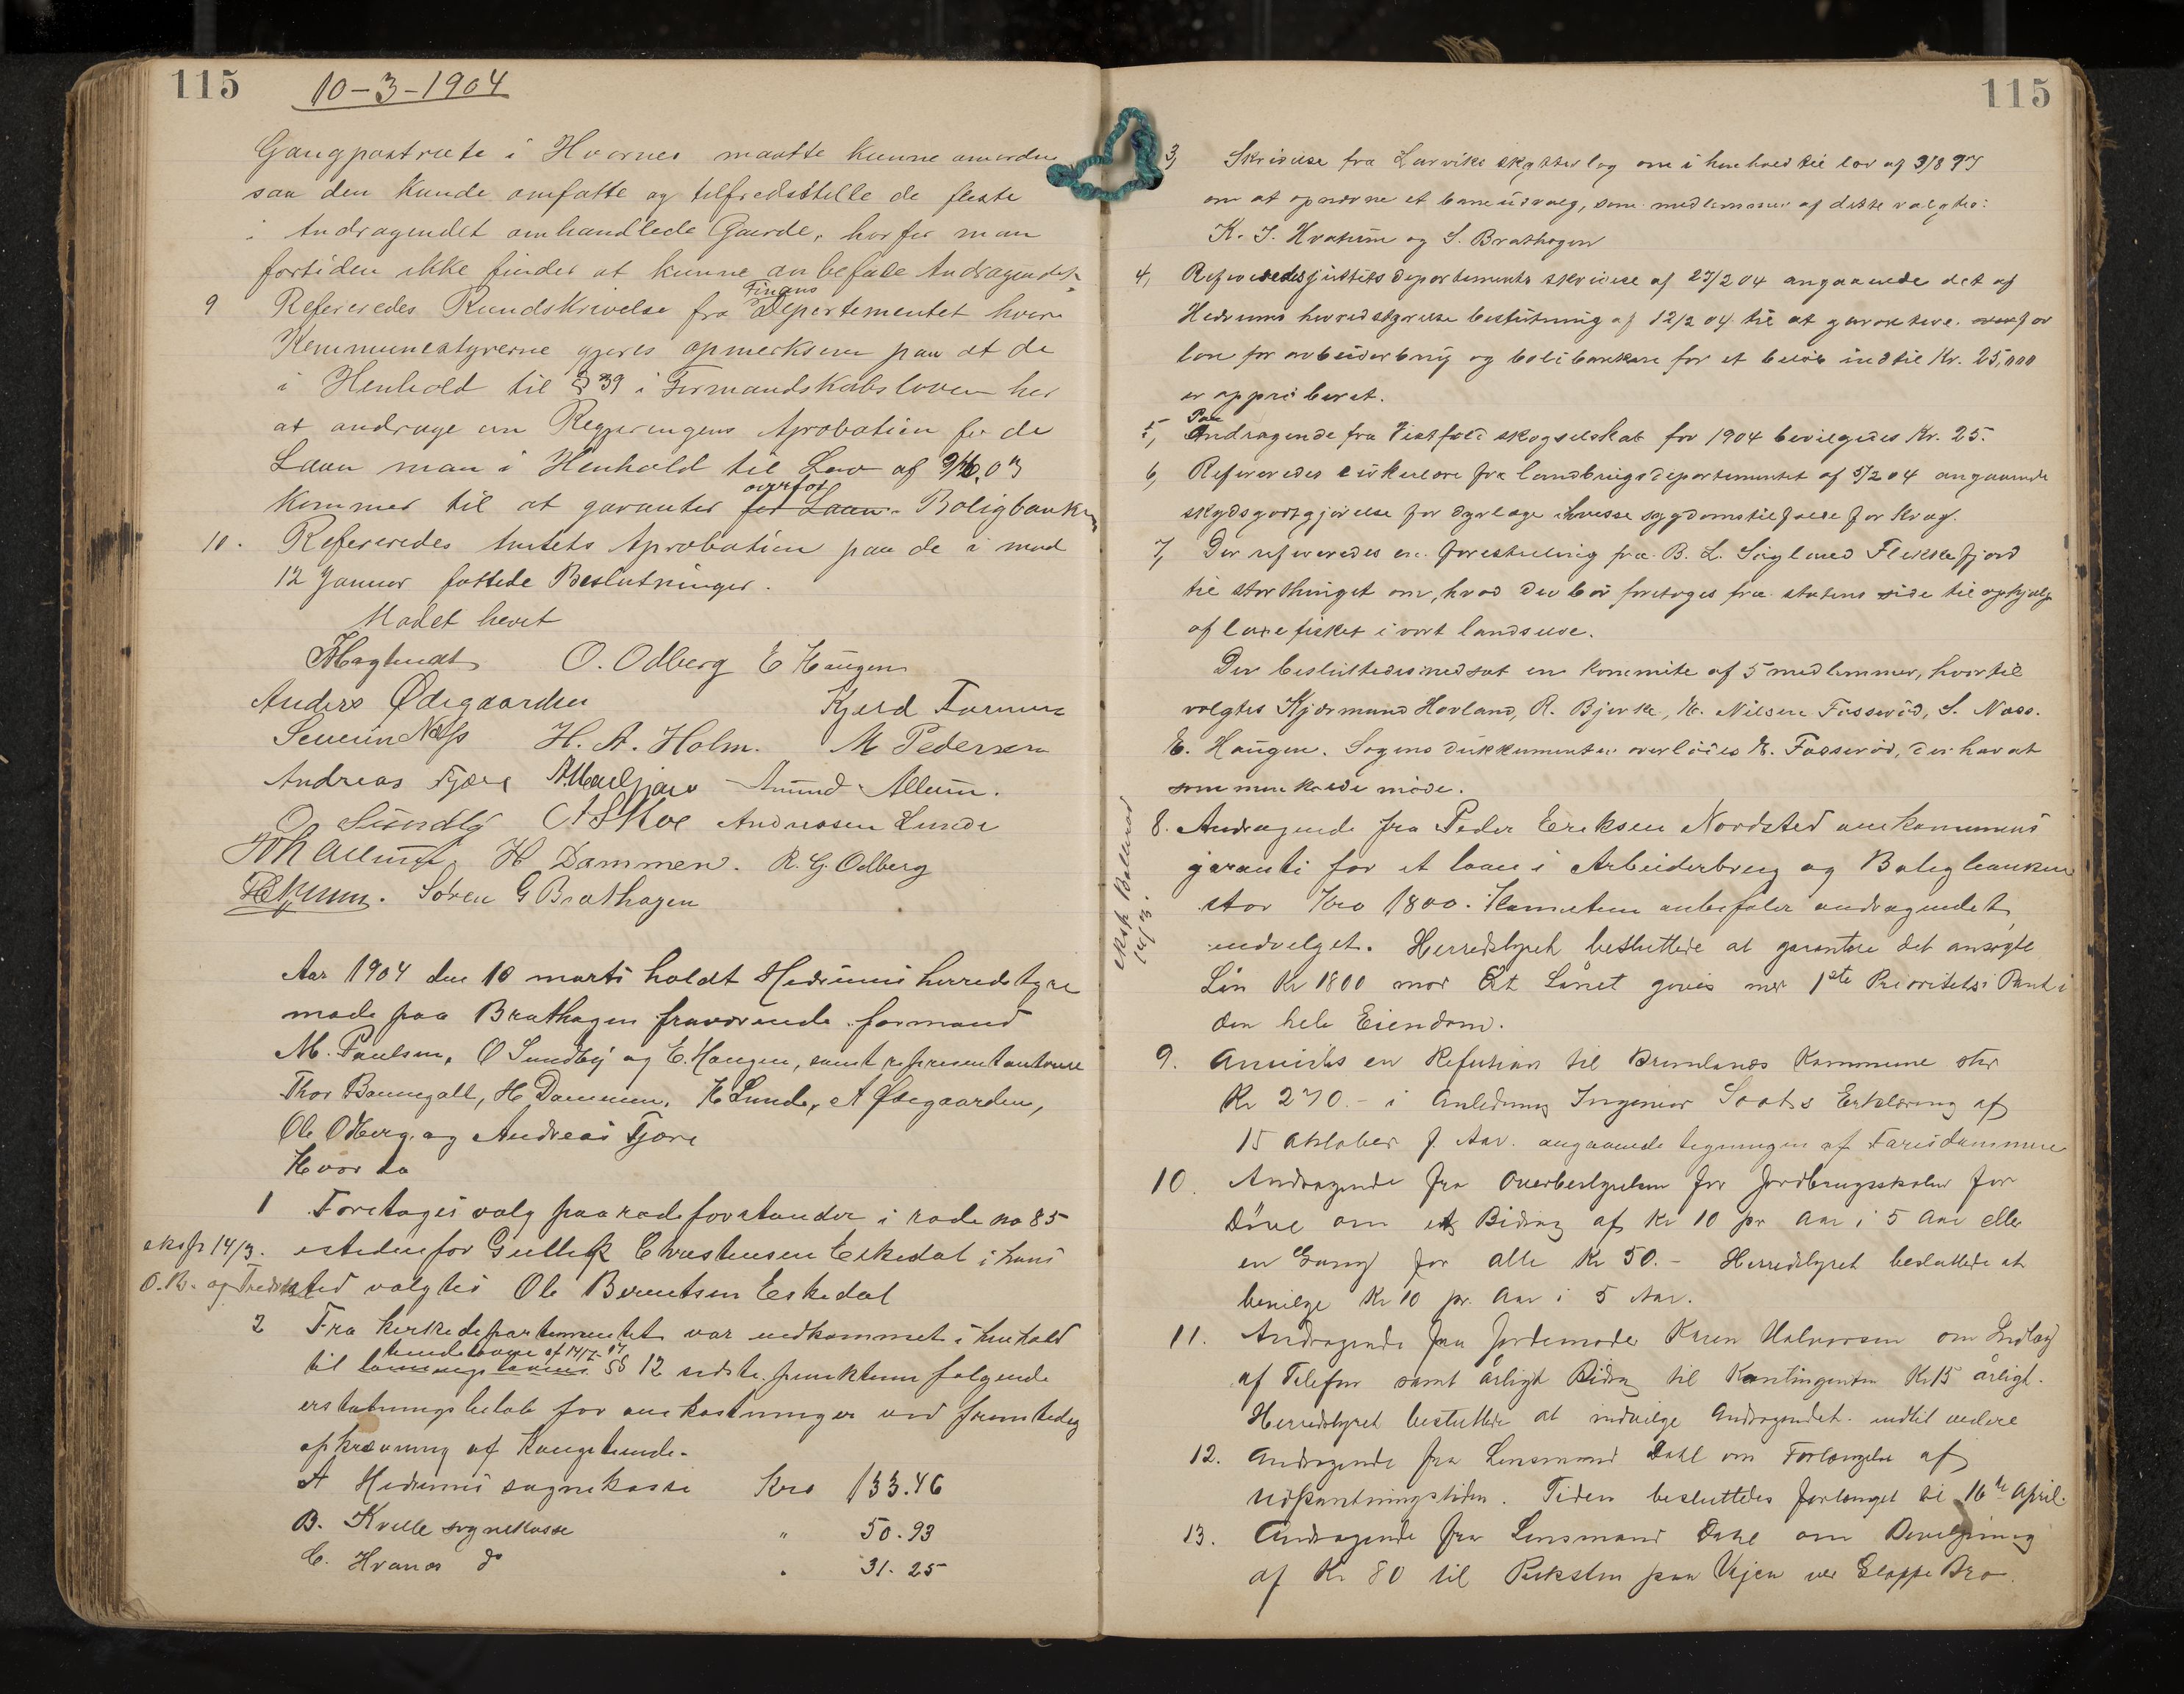 115 10-3-1904
Gangpostrute i Hvarnes maatte kunne anordnes
saa den kunde omfatte og tilfredsstille de fleste
i Andragendet omhandlede Gaarde, hvorfor man
fortiden ikke finder at kunne anbefale Andragendet.
9 Refereredes Rundskrivelse fra Finans Departementet hvori
Kommunestyrerne gjøres opmerksom paa at de
i Henhold til § 39 i Formandskabsloven har
at andrage om Regjeringens Aprobation for de
Laan man i Henhold til Lov af 9/6 03
kommer til at garantere for Laan overfor Boligbanken
10. Refereredes Amtets Aprobation paa de i mød
12 Januar fattede Beslutninger.
Mødet hevet
O. Odberg E Haugen
Anders Ødegaarden
Severin Næss H. A. Holm. M Pedersen
Andreas Fjære Amund Allum.
O Sundby A S Koe Andreasen Lunde
H Dammen. R. G. Odberg
Søren G Brathagen
Aar 1904 den 10 marts holdt Hedrums herredstyre
møde paa Brathagen fraværende formand
M. Paulsen, O Sundby og E. Haugen, samt representanterne
Thor Baunegall, H Dammen, K Lunde, A Ødegaarden,
Ole Odberg og Andreas Fjære
Hvor da
1 Foretages valg paa rodeforstander i rode no 85
eksp 14/3. istedenfor Gullik Christensen Eskedal i hans
O. B. og sted valgtes Ole Berntsen Eskedal
2 Fra kirkedepartementet var indkommet i henhold
til §§ 12 sidste punktum følgende
erstatningsbeløb for omkostninger ved fremtidig
opkrævning af Kongetiende.
A Hedrums sognekasse Kro 133.46
B. Kvelle sognekasse " 50.93
C. Hvarnes do " 31.25
115
3, Skrivelse fra Larviks skytterlag om i henhold til lov af 3/8 97
om at opnævne et baneudvalg, som medlemmer af dette valgtes:
K. J. Hvatum og S. Brathagen
4, Refereredes justitsdepartements skrivelse af 27/2 04 angaaende det af
Hedrums herredstyrelse beslutning af 12/2 04 til at garantere overfor
lån for arbeiderbrug og boligbanken for et beløb indtil Kr. 25,000
er approberet.
5, Paa Andragende fra Vestfold skogselskab for 1904 bevilgedes Kr. 25.
6, Refereredes cirkulære fra landbrugsdepartementet af 5/2 04 angaaende
skydsgodtgjørelse for dyrlæge i hvisse sygdomstilfælde for Kvæg.
7, Der refereredes en forestilling fra B. L. Sigland Flekkefjord
til storthinget om, hvad der bør foretages fra statens side til ophjælp
af laxefisket i vort landselve.
Der besluttedes nedsat en kommite af 5 medlemmer, hvortil
valgtes Kjærmund Hovland, R. Bjerke, N. Nilsen Fosserød, S. Næss.
E. Haugen. Sagens dukkumenter overlodes N. Fosserød, der har at
sammenkalde møde.
8. Andragende fra Peder Eriksen Nordsted om kommunens
garanti for et laan i Arbeiderbrug og Boligbanken
stor Kro 1800. Komiteen anbefaler andragendet
indvilget. Herredstyret besluttede at garantere det ansøgte
Lån Kr 1800 mod At Lånet gives mod 1ste Prioritets Pant i
den hele Eiendom.
9. Anvistes en Refusion til Brunlanes Kommune stor
Kr 270.- i Anledning Ingeniør Saat.s Erklæring af
15 Oktober f. Aar. angaaende tegningen af Farisdammen
10. Andragende fra Overbestyrelsen for Jordbrugsskolen for
Døve om et Bidrag af Kr 10 pr Aar i 5 Aar eller
en Gang for Alle Kr 50.- Herredstyret besluttede at
bevilge Kr 10 pr. Aar i 5 Aar.
11. Andragende fra Jordemoder Karen Halvorsen om Indlæg
af Telefon samt årligt Bidrag til Kontingenten Kr 15 årligt.
Herredstyret besluttede at indvilge Andragendet indtil videre
12. Andragende fra Lensmand Dahl om Forlængelse af
Udpantningstiden. Tiden besluttedes forlænget til 16de April.
13. Andragende fra Lensmand Dahl om Bevilgning
af Kr 80 til Pukksten paa Veien ved Gloppe Bro.